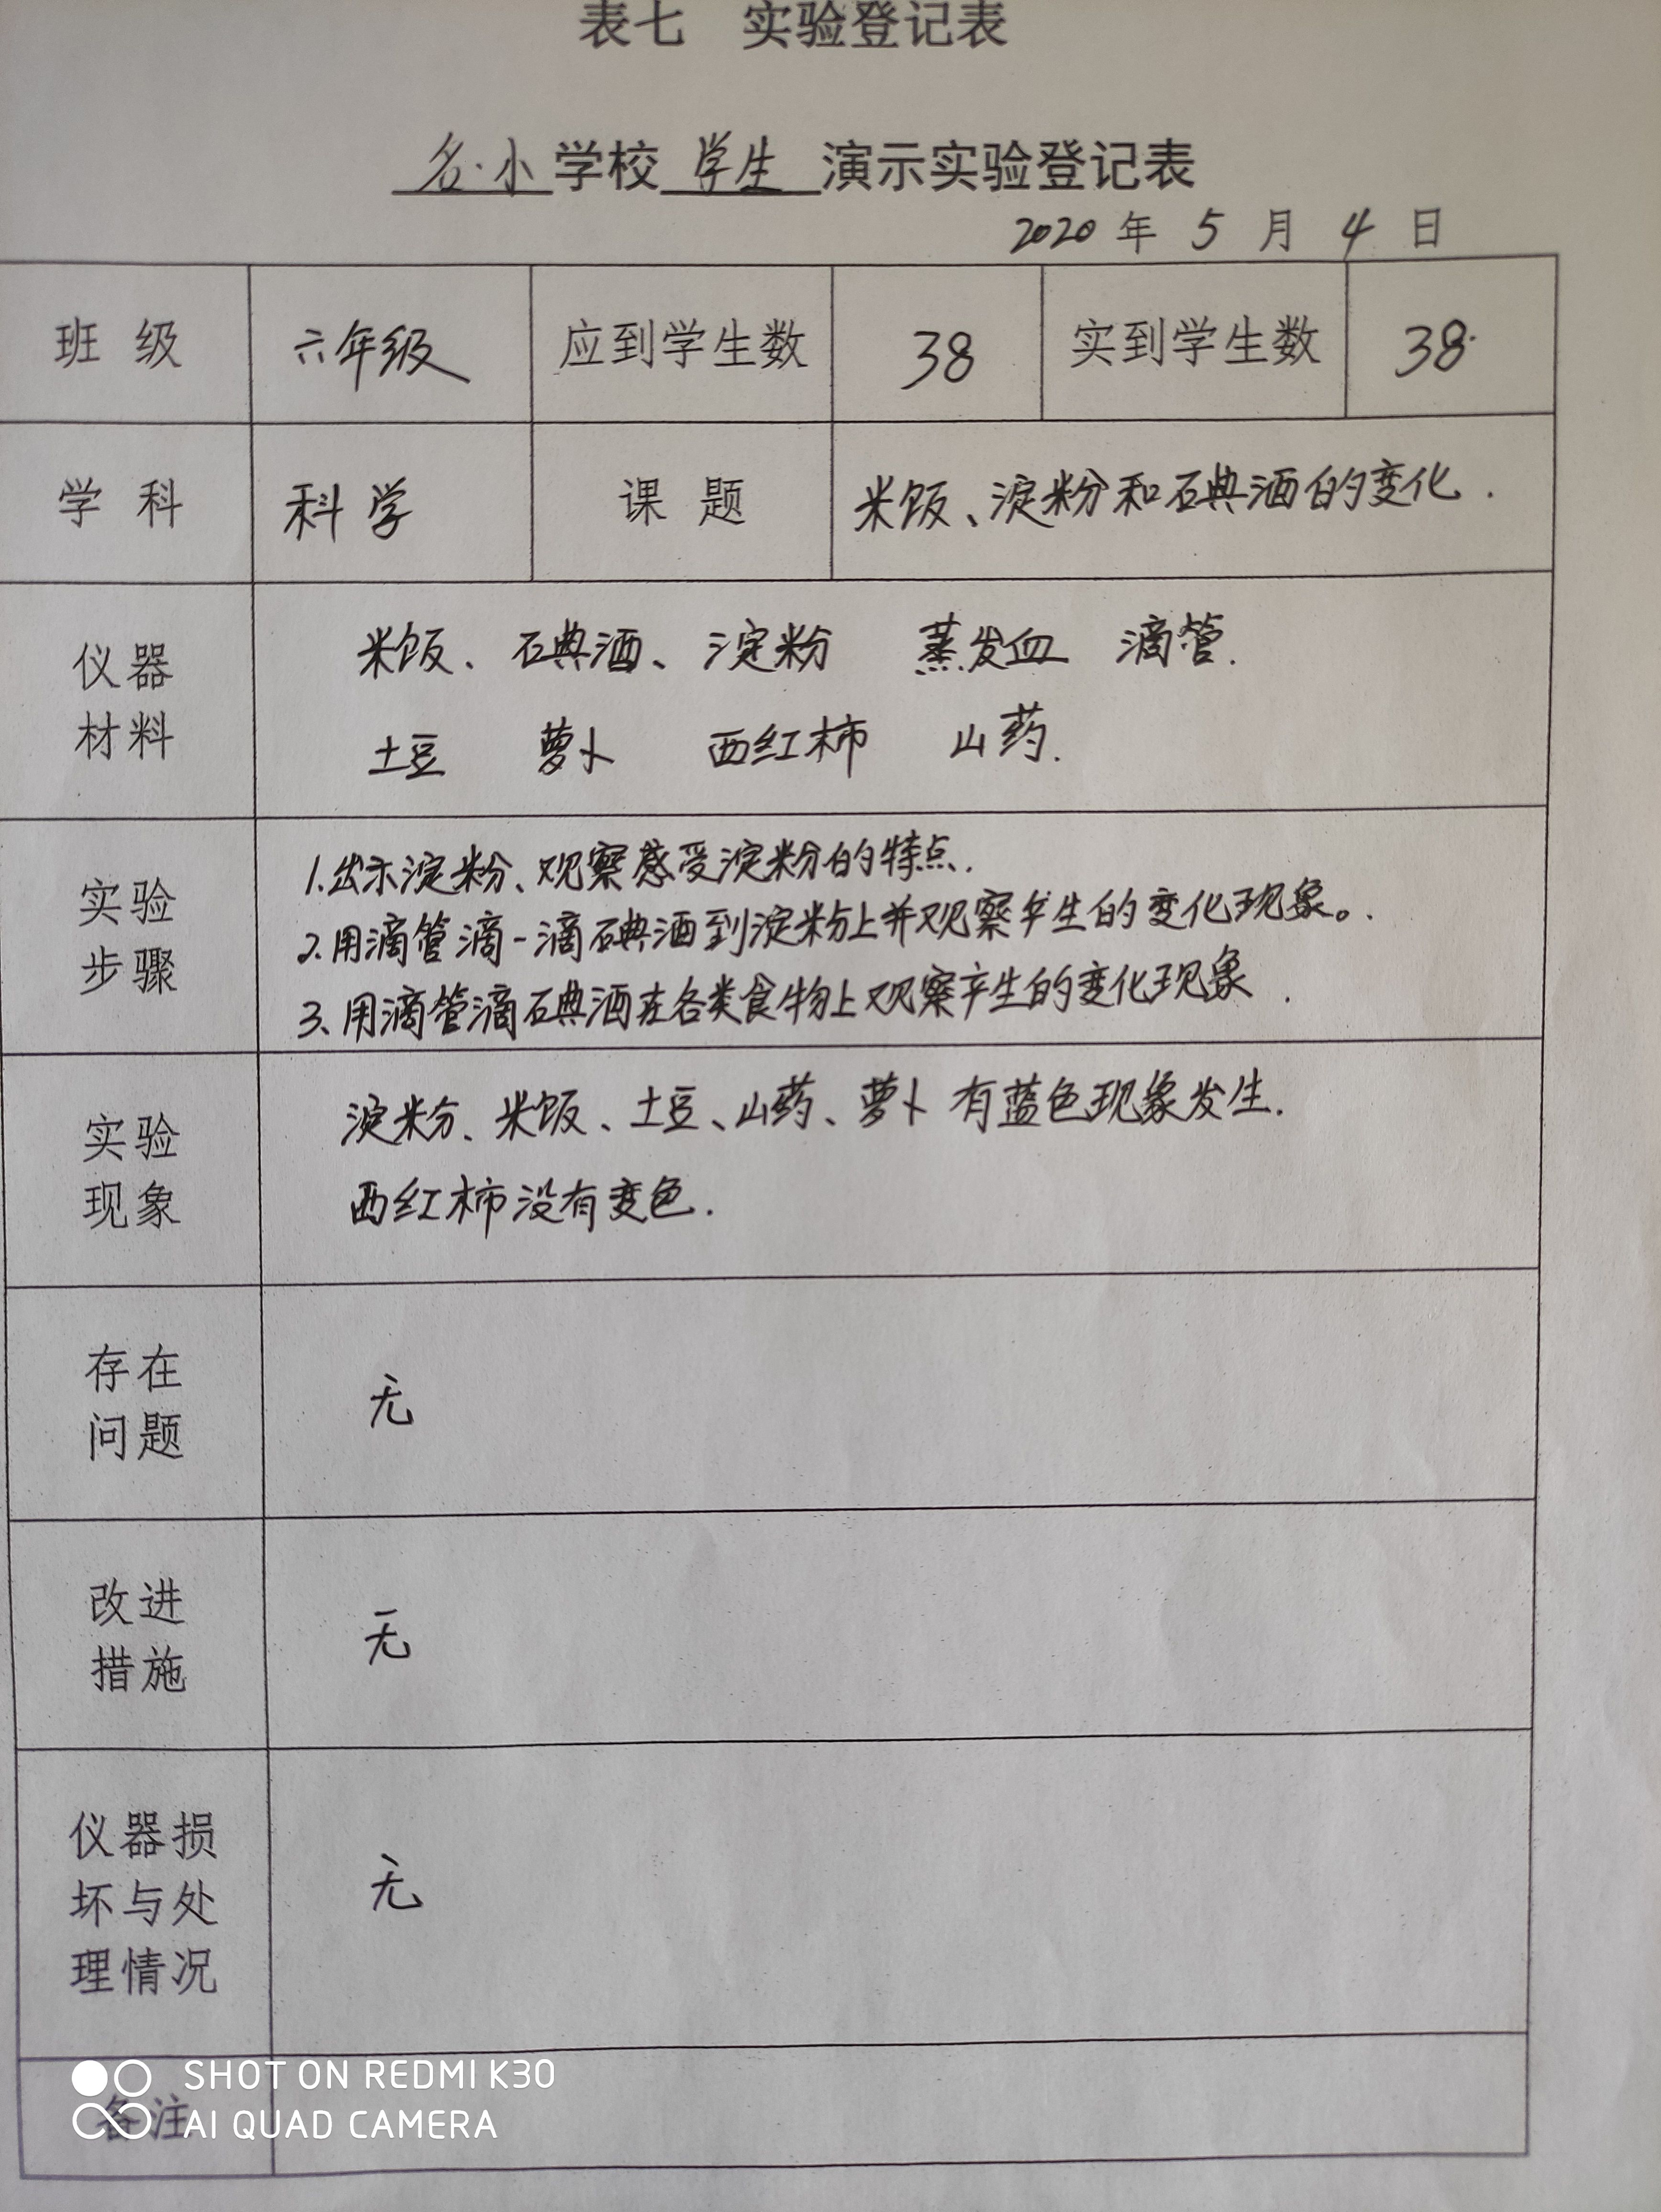 表七 实验登记表
名小学校 学生 演示实验登记表
2020 年 5 月 4 日
班 级 六年级 应到学生数 38 实到学生数 38
学 科 科学 课 题 米饭、淀粉和碘酒的变化.
仪器
材料
米饭、碘酒、淀粉 蒸发皿 滴管.
土豆 萝卜 西红柿 山药.
实验
步骤
1.出示淀粉、观察感受淀粉的特点.
2.用滴管滴一滴碘酒到淀粉上并观察产生的变化现象。.
3、用滴管滴碘酒在各类食物上观察产生的变化现象.
实验
现象
淀粉、米饭、土豆、山药、萝卜有蓝色现象发生.
西红柿没有变色.
存在
问题
无
改进
措施
无
仪器损
坏与处
理情况
无
备注
SHOT ON REDMI K30
AI QUAD CAMERA